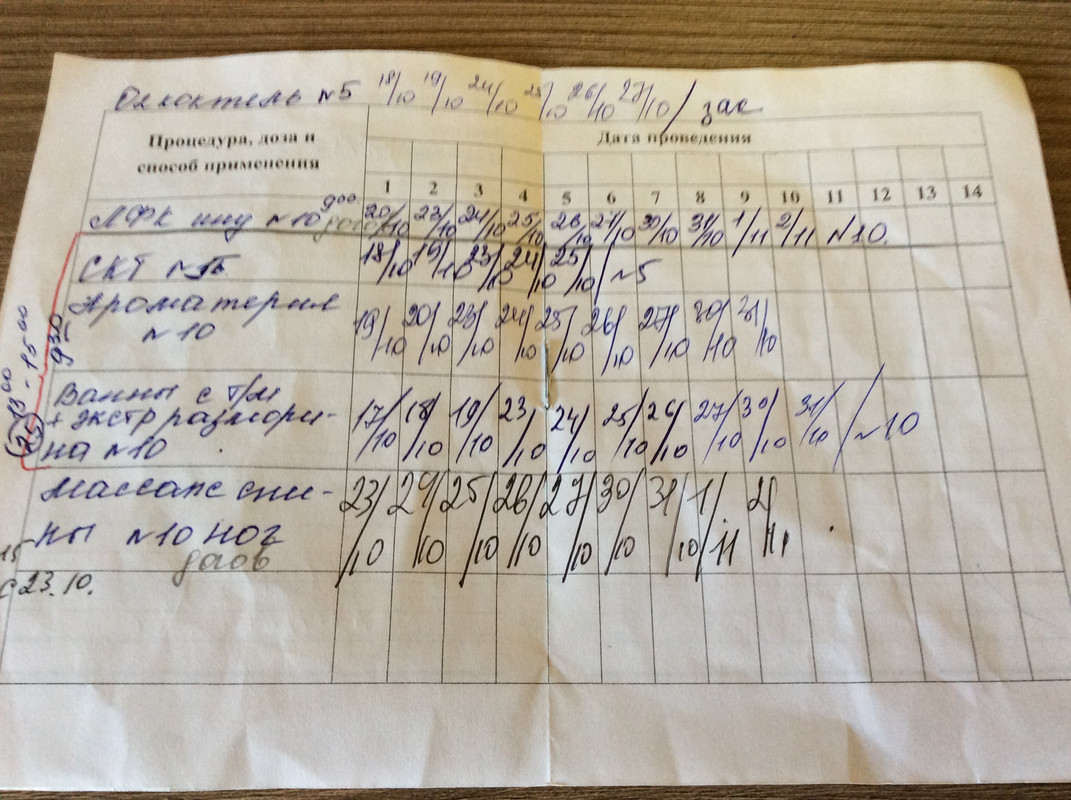 O2 коктель №5 18/10 19/10 24/10 25/10 26/10 27/10 / зас
Процедура, доза и
способ применения
Дата проведения
1 2 3 4 5 6 7 8 9 10 11 12 13 14
ЛФК инд №10 9⁰⁰ догов 20/10 23/10 24/10 25/10 26/10 27/10 30/10 31/10 1/11 2/11 №10.
СКТ 18/10 19/10 23/10 24/10 25/10 / №5
Ароматерап
№10
19/10 20/10 23/10 24/10 25/10 26/10 27/10 30/10 31/10
9³⁰
13⁰⁰ - 15⁰⁰
Ванны с т/м
+ экстр размори-
на №10
17/10 18/10 19/10 23/10 24/10 25/10 26/10 27/10 30/10 31/10 / №10
Массаж спи-
ны №10 ног
догов
23/10 24/10 25/10 26/10 27/10 30/10 31/10 1/11 2/11
15
с 23.10.